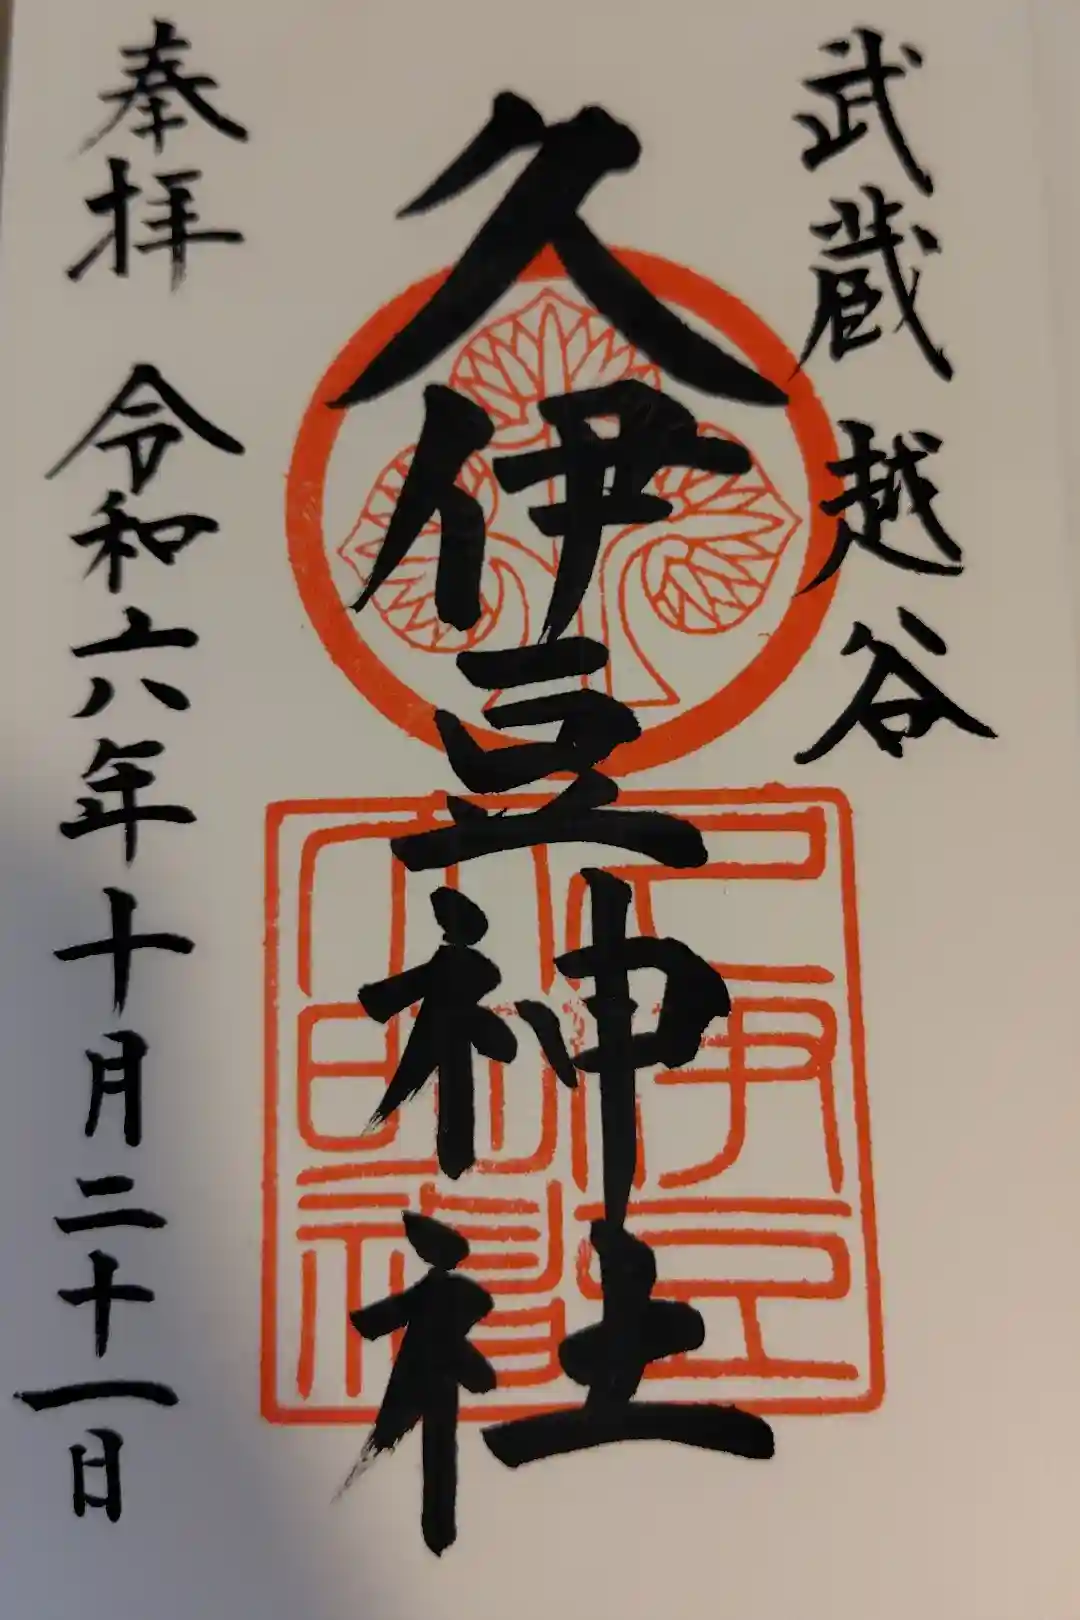 武蔵 越谷
久伊豆神社
奉拝 令和六年十月二十一日